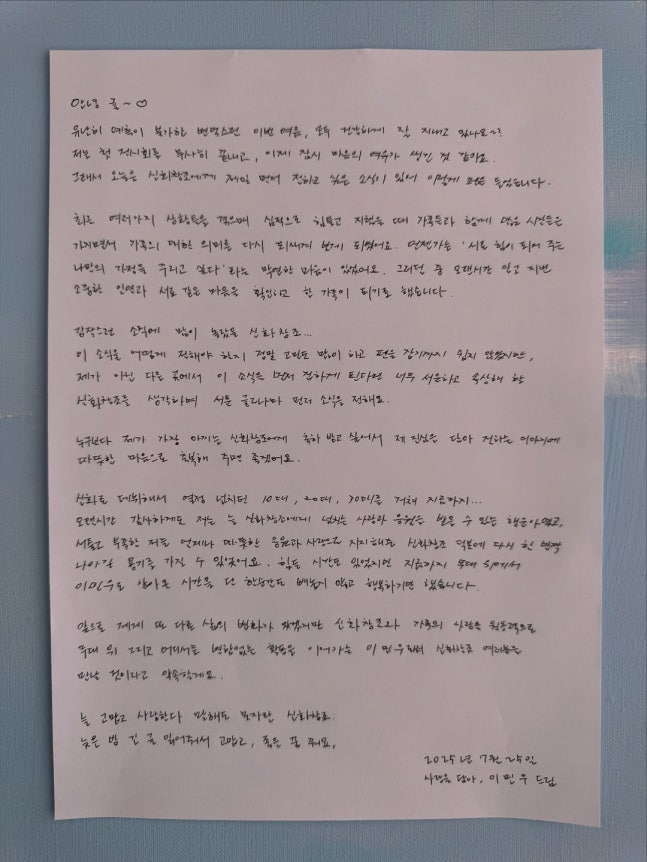 안녕 귤~♡
유난히 예측이 불가한 변덕스런 이번 여름, 모두 건강하게 잘 지내고 있나요~?
저는 첫 전시회를 무사히 끝내고, 이제 잠시 마음의 여유가 생긴 것 같아요.
그래서 오늘은 신화창조에게 제일 먼저 전하고 싶은 소식이 있어 이렇게 펜을 들었습니다.
최근 여러가지 상황들을 겪으며 심적으로 힘들고 지쳤을 때 가족들과 함께 많은 시간들을
가지면서 가족의 대한 의미를 다시 되새겨 보게 되었어요. 언젠가는 '서로 힘이 되어 주는
나만의 가정을 꾸리고 싶다'라는 막연한 마음이 있었어요. 그러던 중 오랜시간 알고 지낸
소중한 인연과 서로 같은 마음을 확인하고 한 가족이 되기로 했습니다.
갑작스런 소식에 많이 놀랐을 신화창조...
이 소식을 어떻게 전해야 하지 정말 고민도 많이 하고 펜을 잡기까지 쉽지 않았지만,
제가 아닌 다른 곳에서 이 소식을 먼저 전하게 된다면 너무 서운하고 속상해 할
신화창조를 생각하며 서툰 글로나마 먼저 소식을 전해요.
누구보다 제가 가장 아끼는 신화창조에게 축하 받고 싶어서 제 진심을 담아 전하는 이야기에
따뜻한 마음으로 축복해 주면 좋겠어요.
신화로 데뷔해서 열정 넘치던 10대, 20대, 30대를 거쳐 지금까지...
오랜시간 감사하게도 저는 늘 신화창조에게 넘치는 사랑과 응원을 받을 수 있는 행운아였고,
서툴고 부족한 저를 언제나 따뜻한 응원과 사랑으로 지지해준 신화창조 덕분에 다시 한 번
나아갈 용기를 가질 수 있었어요. 힘든 시간도 있었지만 지금까지 무대 위에서
이민우로 살아온 시간을 단 한순간도 빼놓지 않고 행복하기만 했습니다.
앞으로 제게 또 다른 삶의 변화가 있겠지만 신화창조와 가족의 사랑을 원동력으로
무대 위 그리고 어디서든 변함없는 활동을 이어가는 이민우로 신화창조 여러분을
만날 것이라고 약속할게요.
늘 고맙고 사랑한다 말해도 모자란 신화창조
늦은 밤 긴 글 읽어줘서 고맙고, 좋은 꿈 꿔요.
2025년 7월 25일
사랑을 담아, 이민우 드림